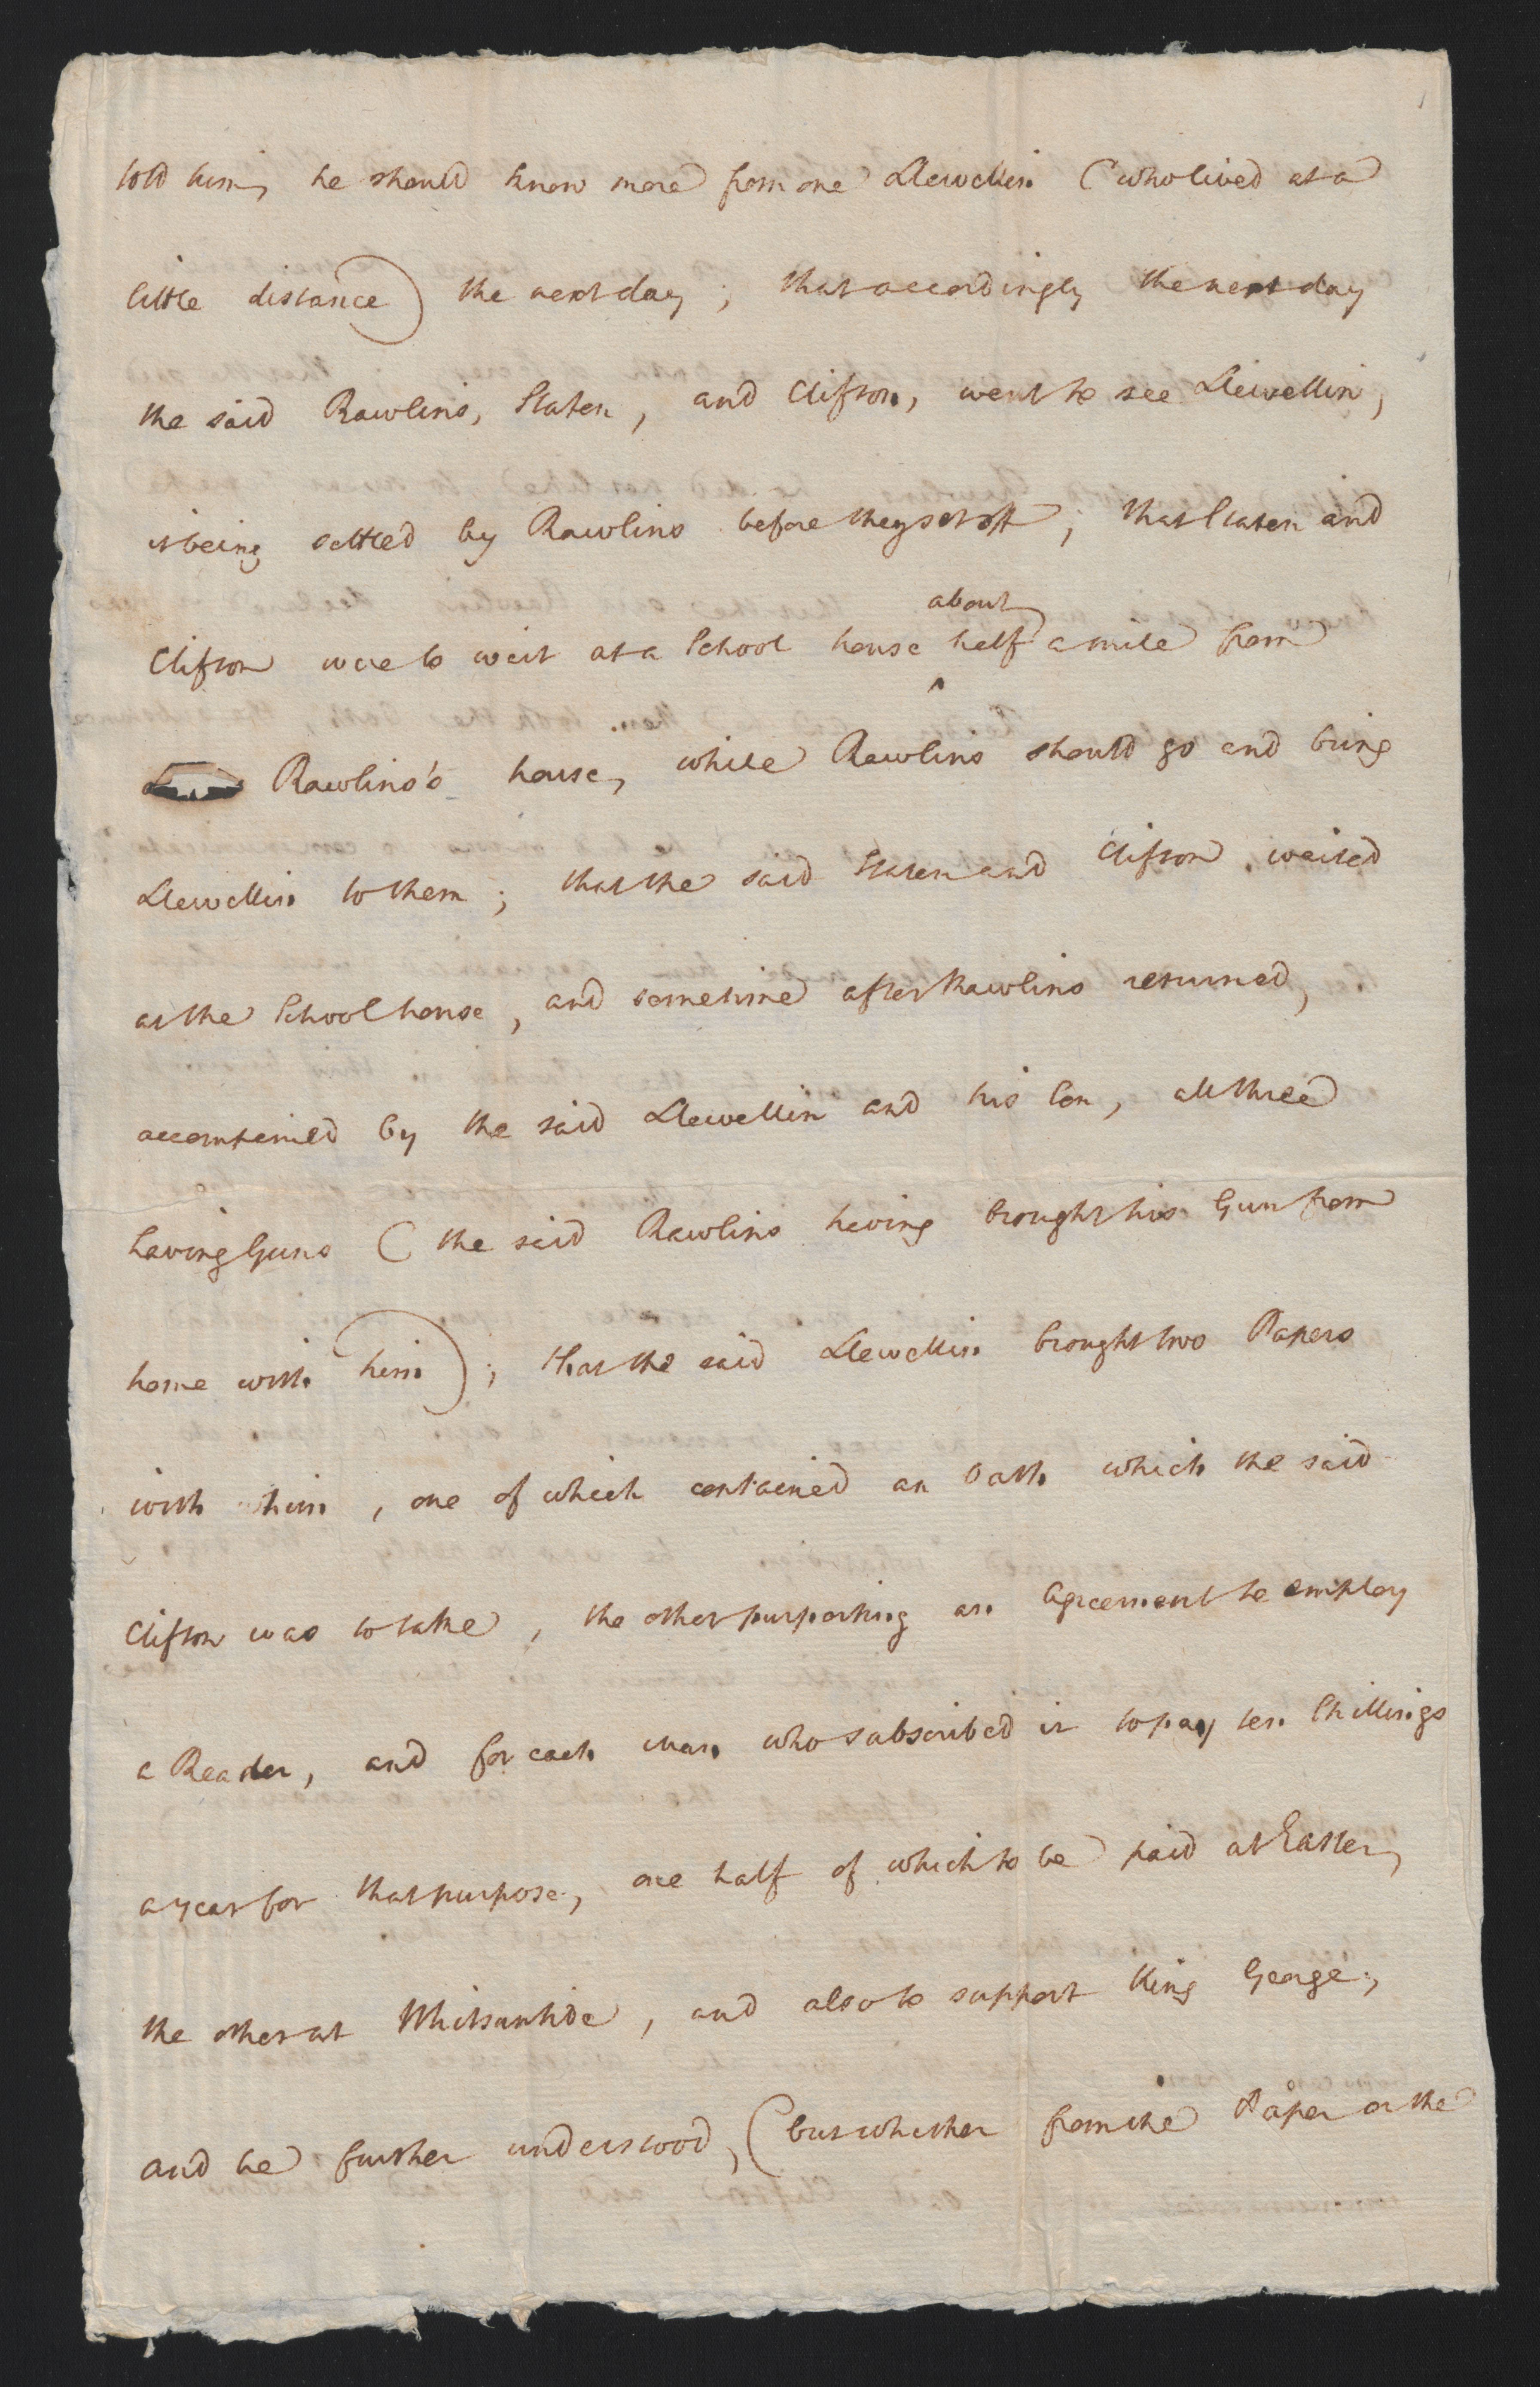 told him, he should know more from one Llewellin (who lived at a
little distance) the next day; that accordingly the next day
the said Rawlins, Staten, and Clifton, went to see Llewellin,
it being settled by Rawlins before they set off; that Staten and
about
Clifton were to wait at a School house ^ half a mile from
Rawlins's house, while Rawlins should go and bring
Llewellin to them; that the said Staten and Clifton waited
at the School house, and sometime after Rawlins returned,
accompanied by the said Llewellin and his Son, all three
having Guns (the said Rawlins having brought his Gun from
home with him); that the said Llewellin brought two Papers
with him, one of which contained an Oath which the said
Clifton was to take, the other purporting an Agreement to employ
a Reader, and for each man who subscribed it to pay ten Shillings
a year for that purpose, one half of which to be paid at Easter,
the other at Whitsuntide, and also to support King George;
and he further understood, (but whether from the Paper or the